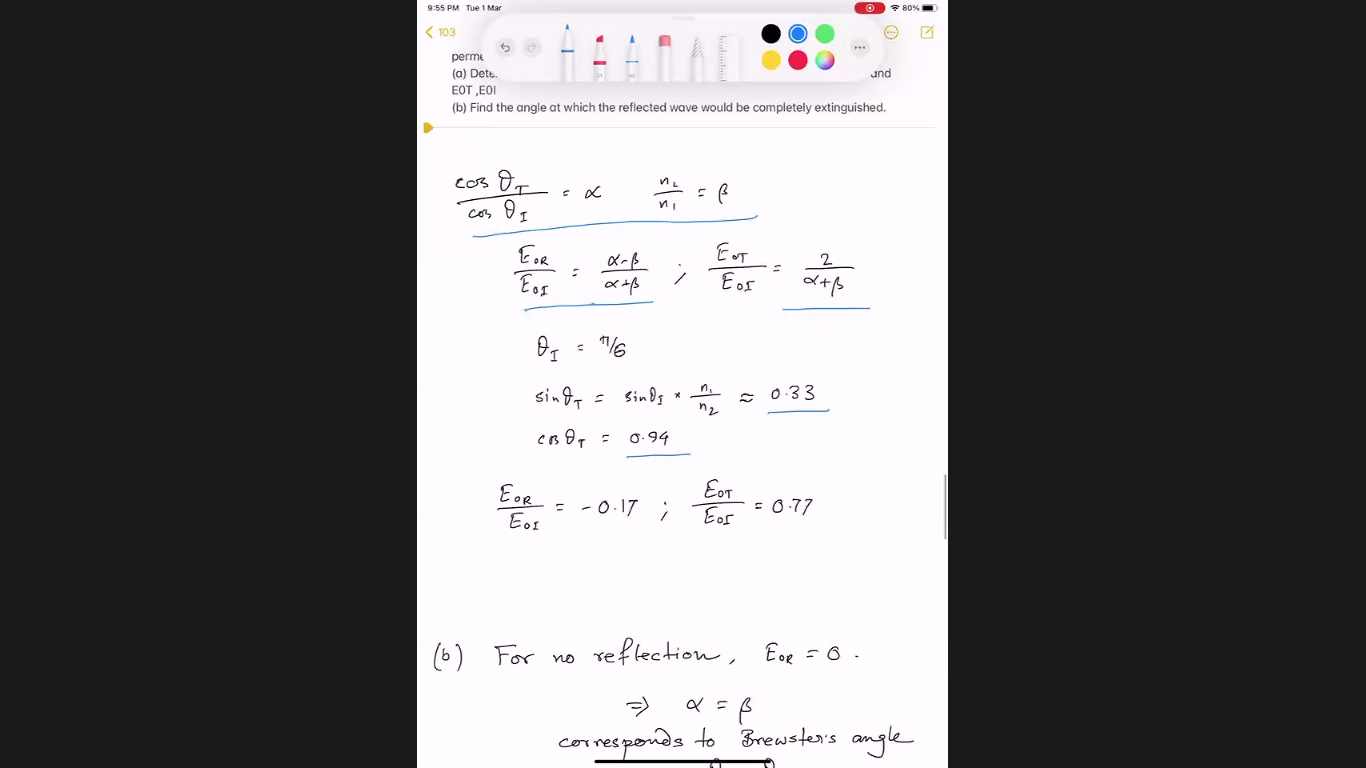 9:55 PM Tue 1 Mar 80%
103
perme
(a) Dete and
E0T ,E0I
(b) Find the angle at which the reflected wave would be completely extinguished.
cos θT / cos θI = α n2 / n1 = β
E0R / E0I = α-β / α+β ; E0T / E0I = 2 / α+β
θI = π/6
sinθT = sinθI * n1 / n2 ≈ 0.33
cosθT = 0.94
E0R / E0I = -0.17 ; E0T / E0I = 0.77
(b) For no reflection, E0R = 0 .
⇒ α = β
corresponds to Brewster's angle